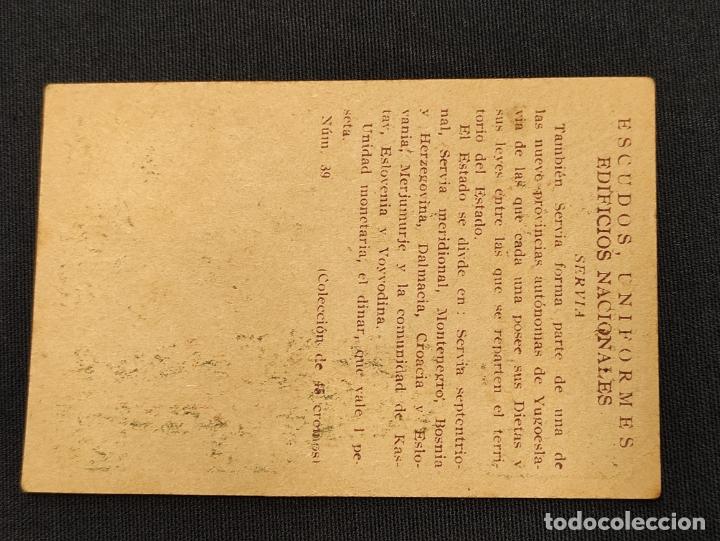 ESCUDOS, UNIFORMES
EDIFICIOS NACIONALES
SERVIA
También Servia forma parte de una de
las nueve provincias autónomas de Yugoesla-
via de las que cada una posee sus Dietas y
sus leyes entre las que se reparten el terri-
torio del Estado.
El Estado se divde en: Servia septentrio-
nal, Servia meridional, Montenegro, Bosnia
y Herzegovina, Dalmacia, Croacia y Eslo-
vania, Merjumurje y la comunidad de Kas-
tav, Eslovenia y Voyvodina.
Unidad monetaria, el dinar, que vale 1 pe-
seta.
Núm. 39 (Colección de cromos)
todocoleccion
todocoleccion.net